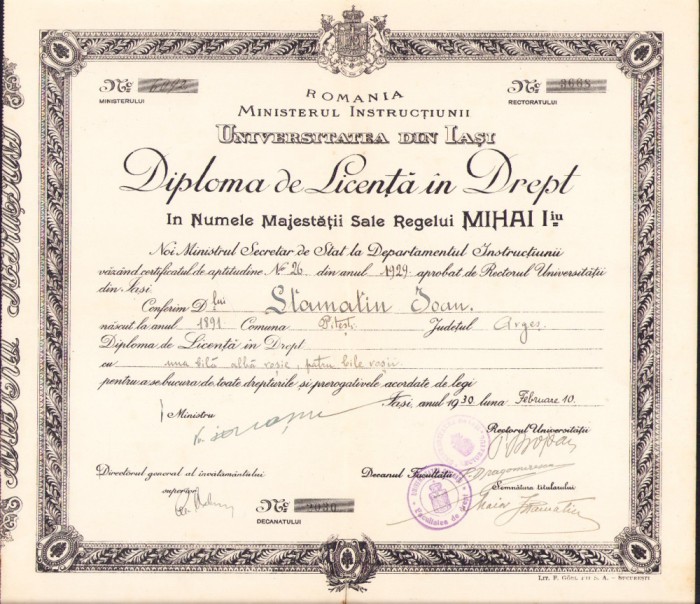 No
MINISTERULUI
No 3668
RECTORATULUI
ROMANIA
MINISTERUL INSTRUCŢIUNII
UNIVERSITATEA DIN IAŞI
Diploma de Licenţă în Drept
In Numele Majestăţii Sale Regelui MIHAI Iiu
Noi Ministrul Secretar de Stat la Departamentul Instrucţiunii
văzând certificatul de aptitudine No 26 din anul 1929 aprobat de Rectorul Universităţii
din Iaşi
Conferim D lui Stamatin Ioan.
născut la anul 1891 Comuna Piteşti Judeţul Argeş
Diploma de Licenţă în Drept
cu una bilă albă roşie, patru bile roşii
pentru a se bucura de toate drepturile şi prerogativele acordate de legi
Iaşi, anul 1930 luna Februare 10.
Ministru
Rectorul Universităţii
Directorul general al învăţământului
superior
Decanul Facultăţii
Semnătura titularului
No 2030
DECANATULUI
Facultatea de Drept
LIT. F. GÖBL FII S. A. - BUCUREŞTI